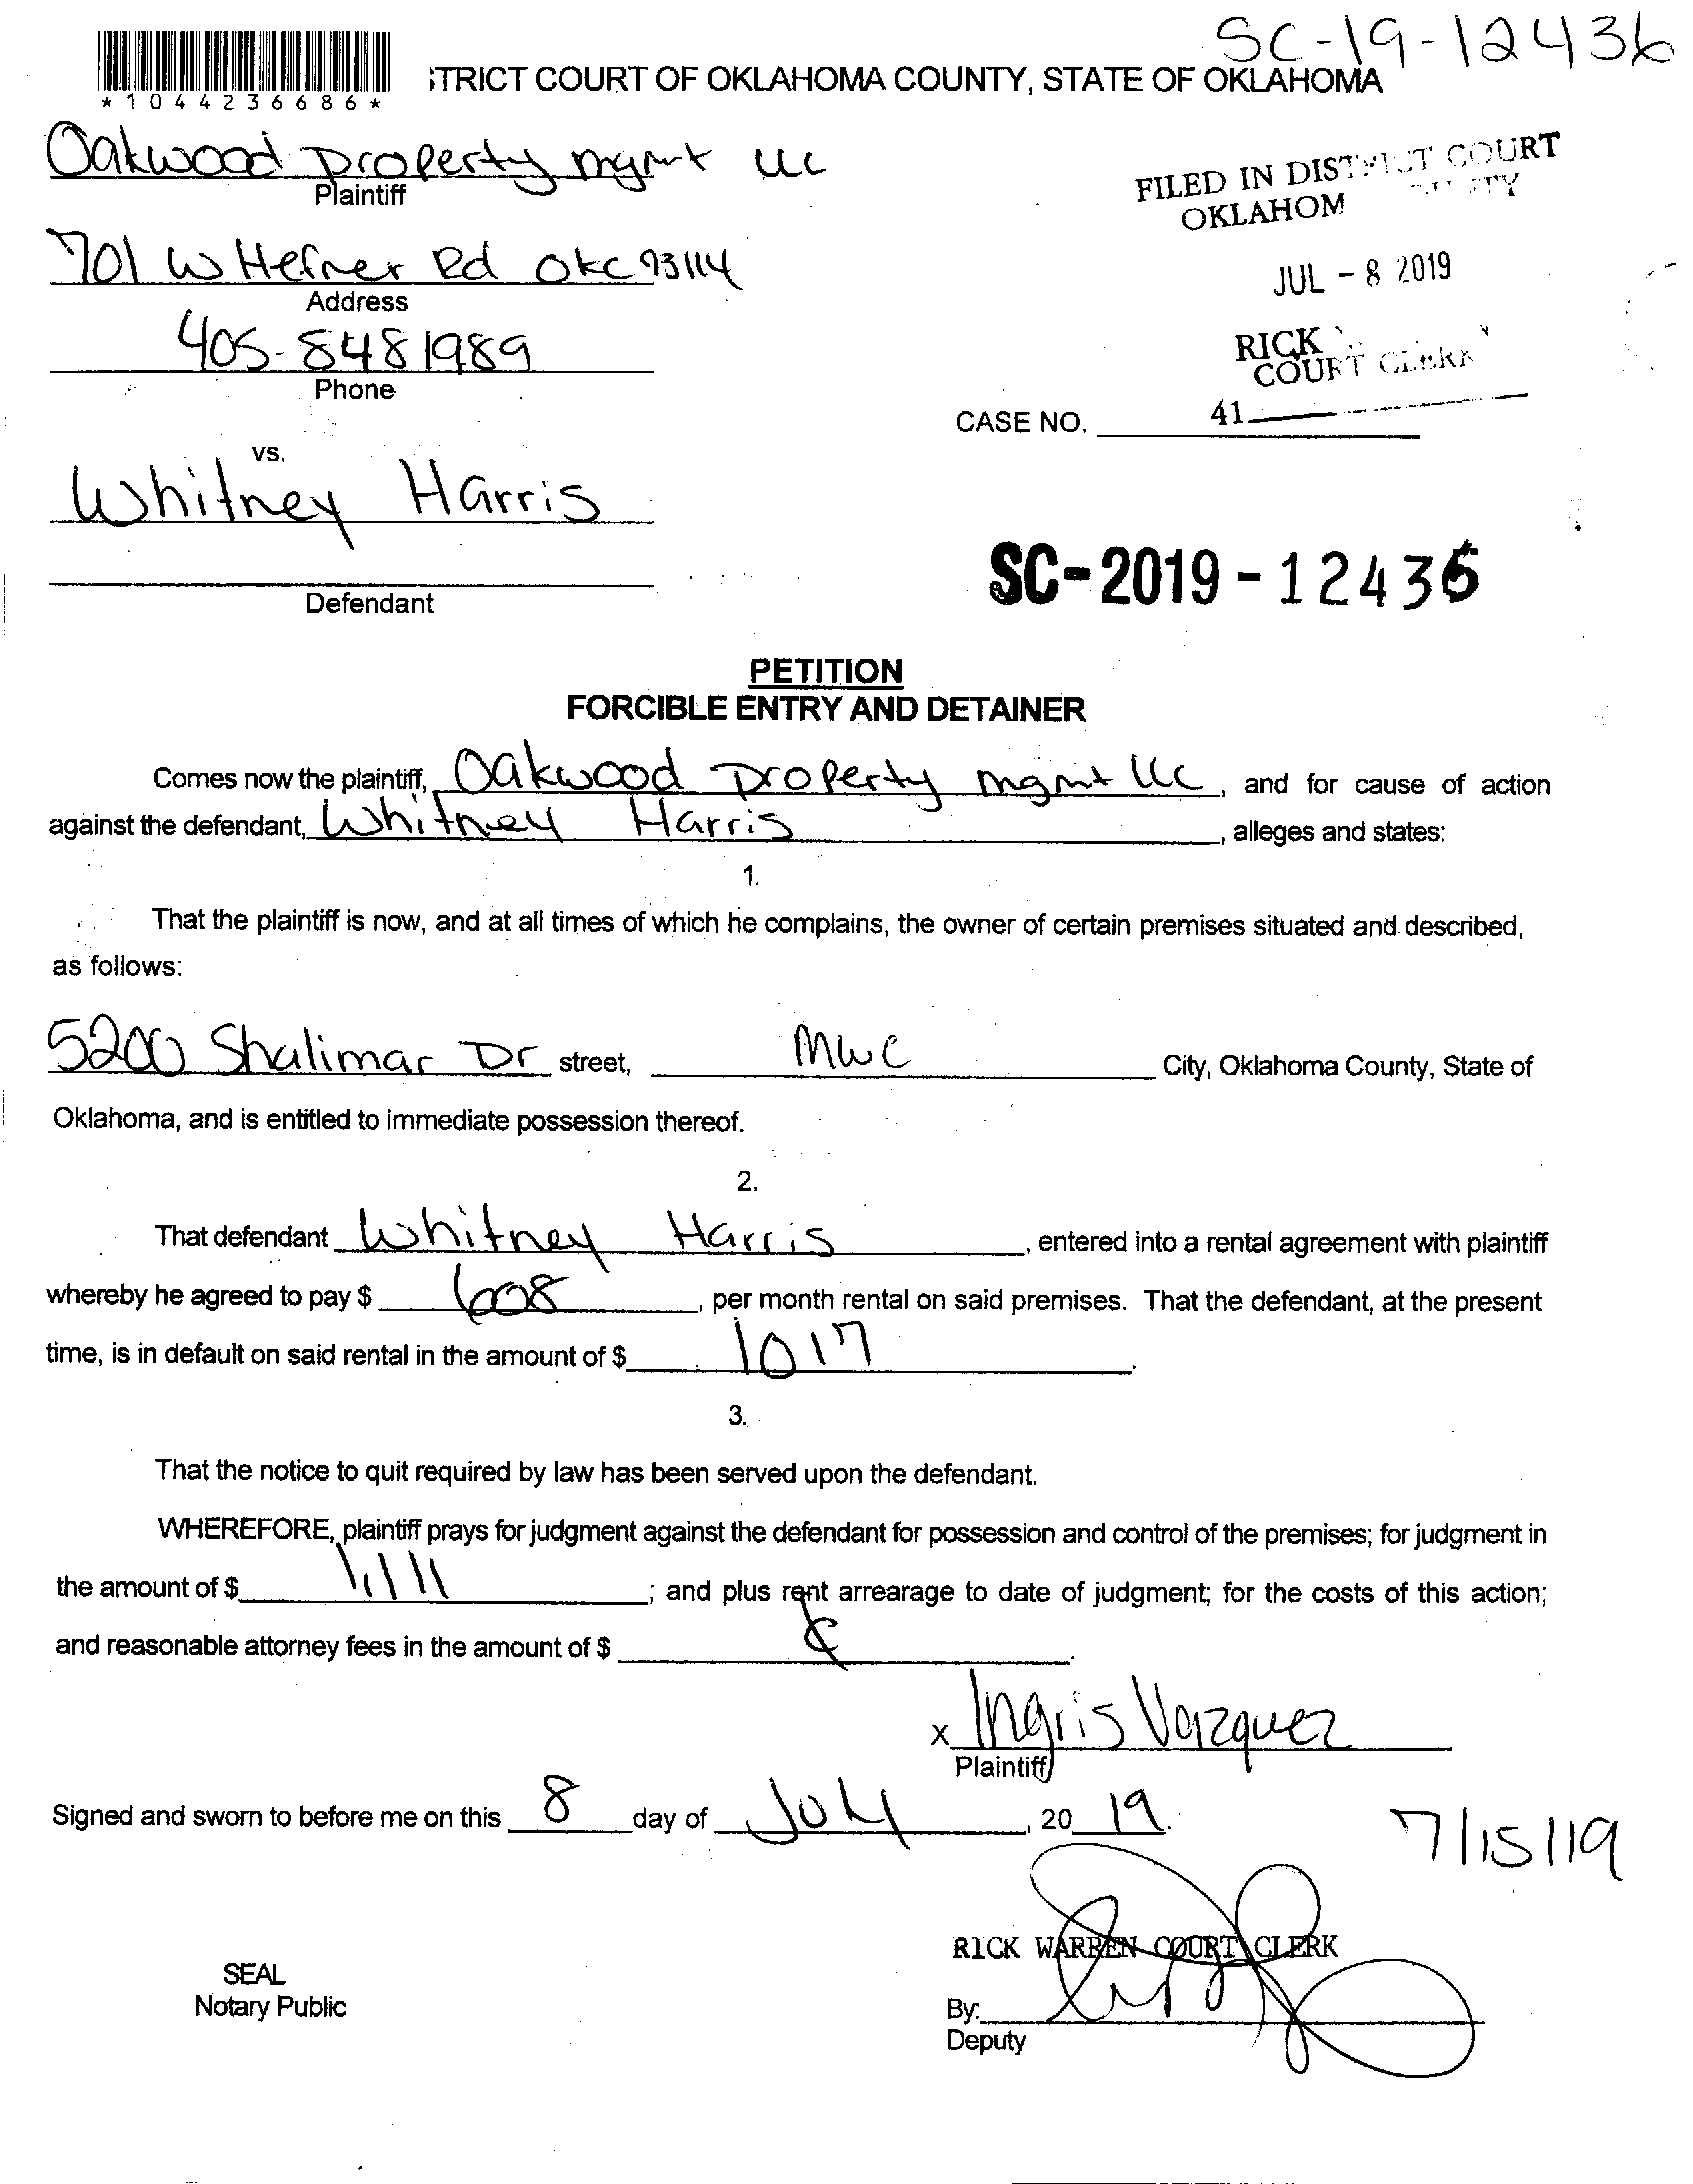 SC-19-12436
*1044236686*
TRICT COURT OF OKLAHOMA COUNTY, STATE OF OKLAHOMA
Oakwood Property mgmt LLC
Plaintiff
FILED IN DISTRICT COURT
OKLAHOM
701 W Hefner Rd OKC 73114
Address
JUL - 8 2019
405-848 1989
Phone
RICK
COURT CLERK
41
CASE NO.
vs.
Whitney Harris
Defendant
SC-2019-12436
PETITION
FORCIBLE ENTRY AND DETAINER
Comes now the plaintiff, Oakwood Property mgmt LLC, and for cause of action
against the defendant, Whitney Harris, alleges and states:
1.
That the plaintiff is now, and at all times of which he complains, the owner of certain premises situated and described,
as follows:
5200 Shalimar Dr street, MWC City, Oklahoma County, State of
Oklahoma, and is entitled to immediate possession thereof.
2.
That defendant Whitney Harris, entered into a rental agreement with plaintiff
whereby he agreed to pay $ 608, per month rental on said premises. That the defendant, at the present
time, is in default on said rental in the amount of $ 1017.
3.
That the notice to quit required by law has been served upon the defendant.
WHEREFORE, plaintiff prays for judgment against the defendant for possession and control of the premises; for judgment in
the amount of $ 1,111; and plus rent arrearage to date of judgment; for the costs of this action;
and reasonable attorney fees in the amount of $
x Ingris Vazquez
Plaintiff
Signed and sworn to before me on this 8 day of July, 20 19.
7/15/19
RICK WARREN COURT CLERK
SEAL
Notary Public
By:
Deputy